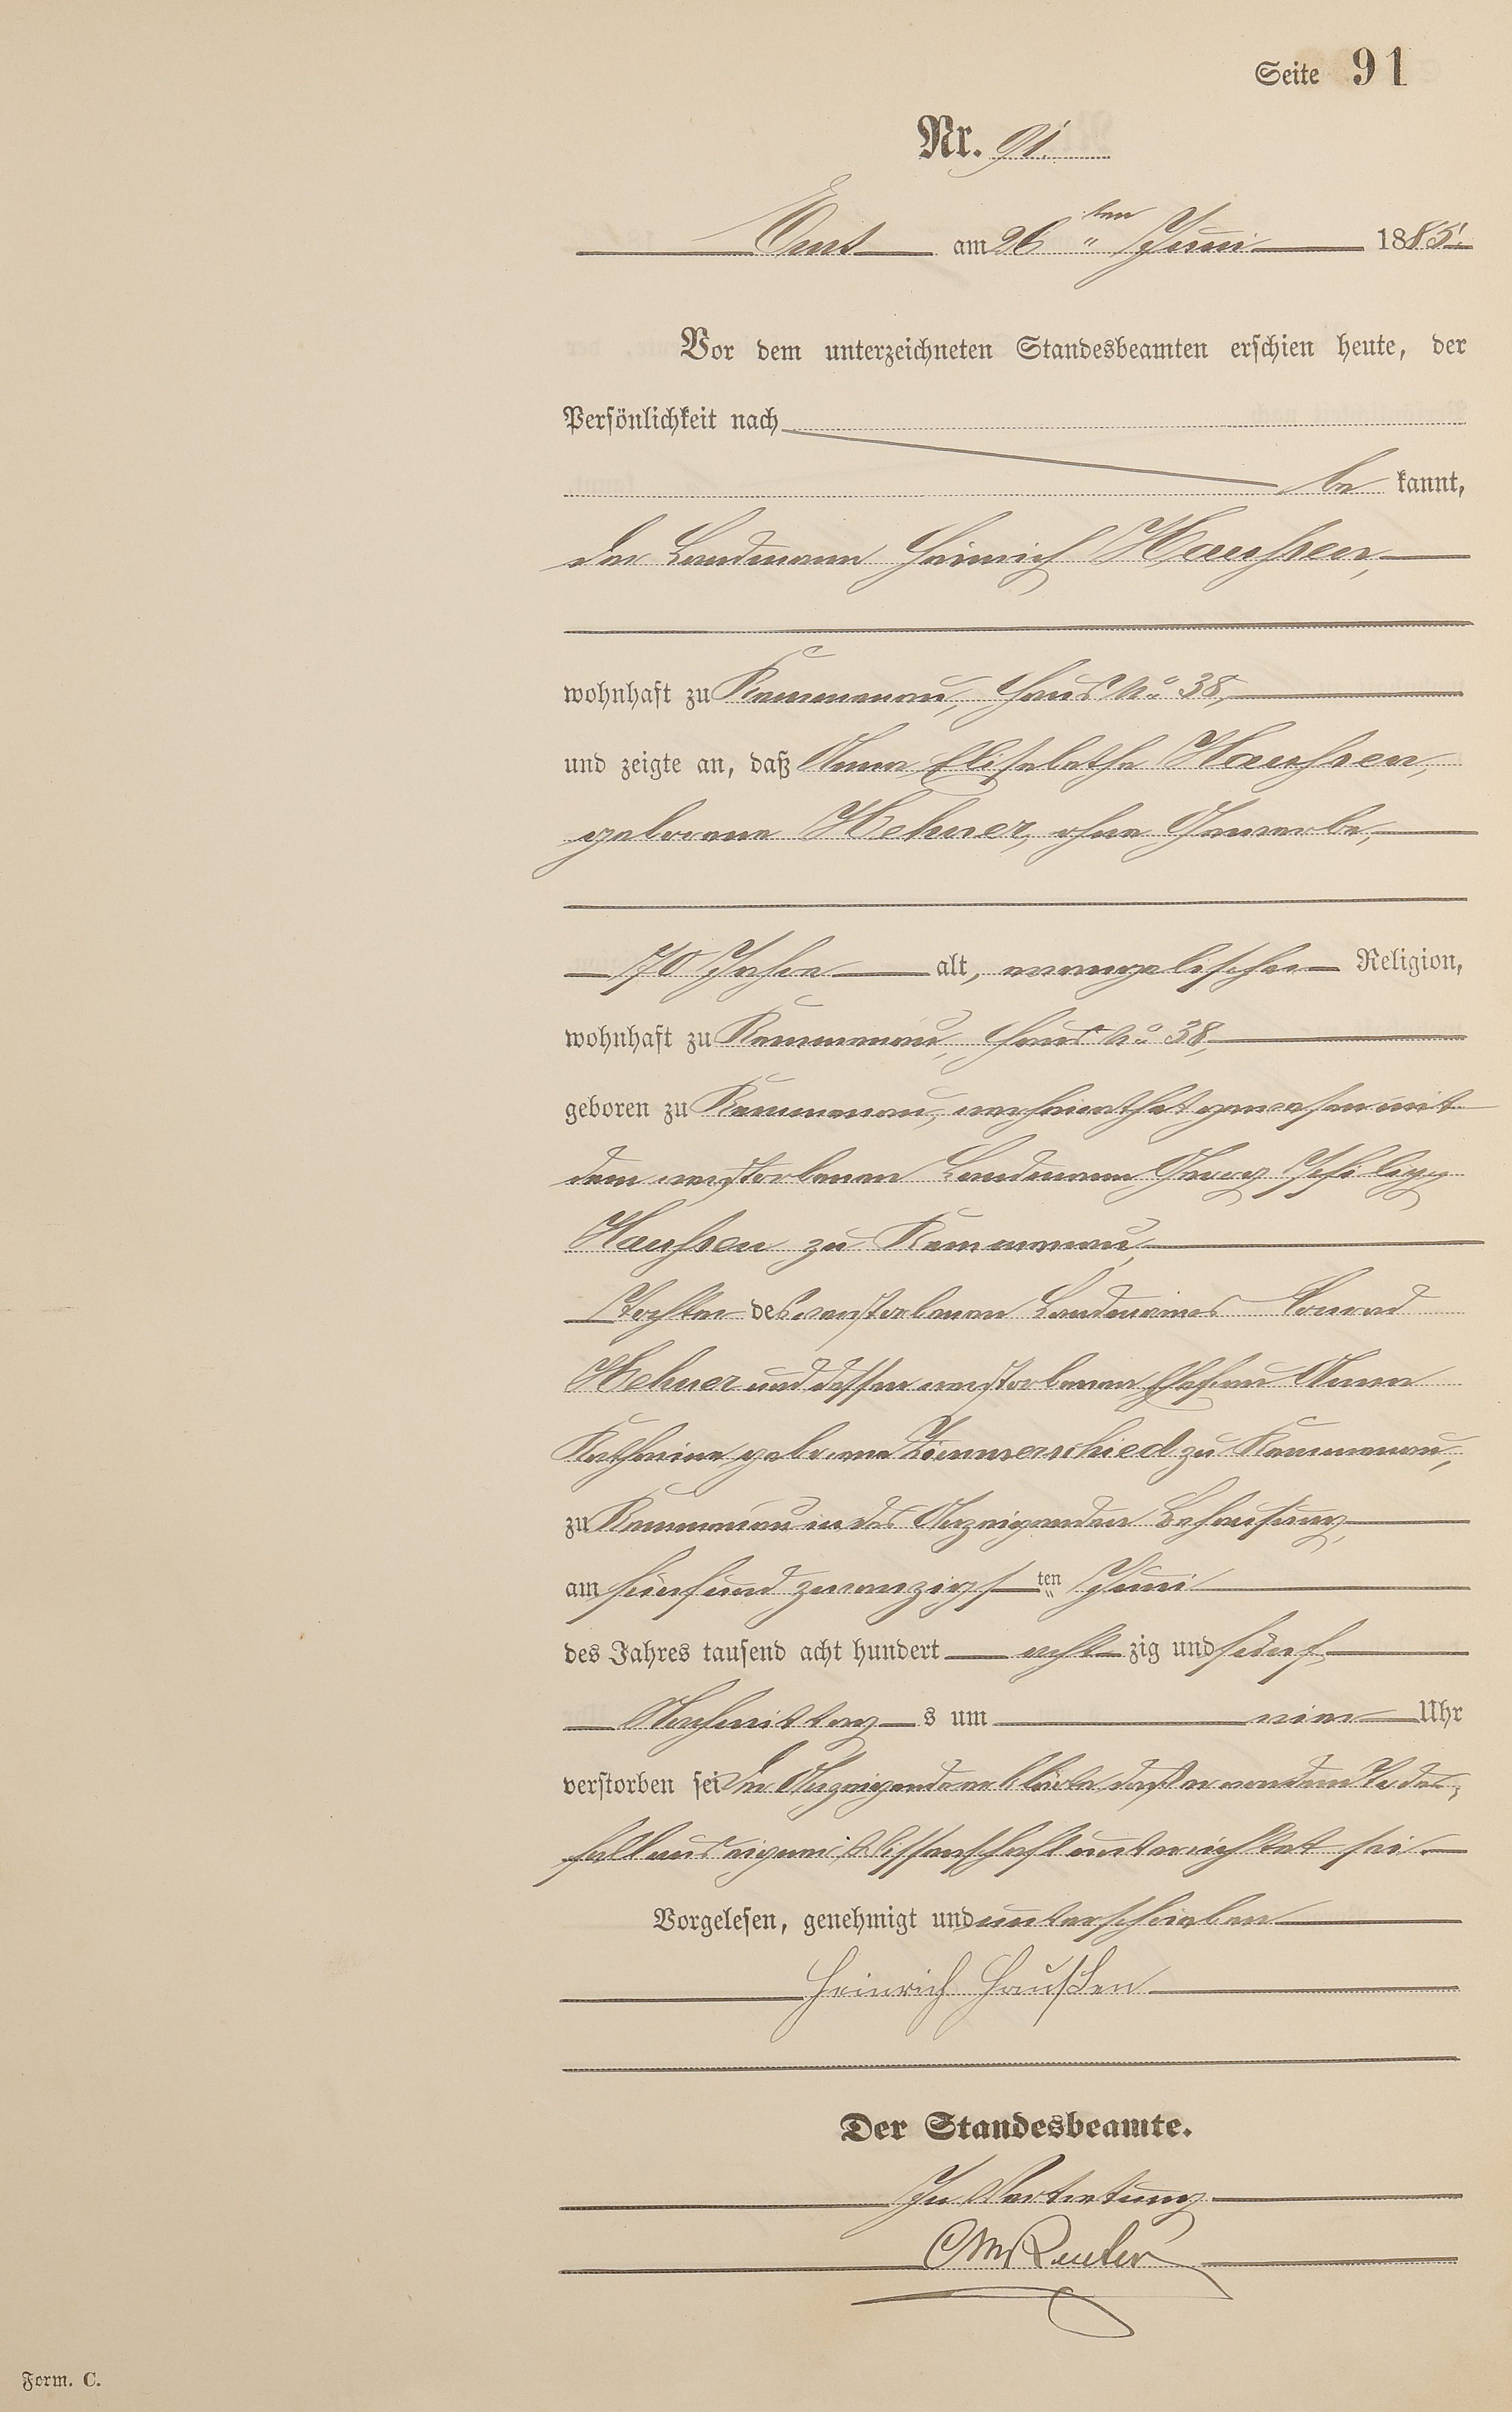 Seite 91
Nr. 91.
Ems am 26ten Juni 1885.
Vor dem unterzeichneten Standesbeamten erschien heute, der
Persönlichkeit nach
be kannt,
der Landmann Heinrich Haußen,
wohnhaft zu Kemmenau, Haus No 38,
und zeigte an, daß Anna Elisabetha Haußen,
geborene Hehner, ohne Gewerbe,
70 Jahre alt, evangelischer Religion,
wohnhaft zu Kemmenau, Haus No 38,
geboren zu Kemmenau, verheirathet gewesen mit
dem verstorbenen Landmann Georg Philipp
Haußen zu Kemmenau,
Tochter des verstorbenen Landmannes Conrad
Hehner und dessen verstorbenen Ehefrau Anna
Katharina geborene Zimmerschied zu Kemmenau,
zu Kemmenau in des Anzeigenden Behausung,
am fünfundzwanzigsten Juni
des Jahres tausend acht hundert acht zig und fünf,
Nachmittag s um vier Uhr
verstorben sei. Der Anzeigende erklärte, daß er von dem Todes-
fall aus eigener Wissenschaft unterrichtet sei.
Vorgelesen, genehmigt und unterschrieben
Heinrich Haußen
Der Standesbeamte.
In Vertretung
Reuter
Form. C.